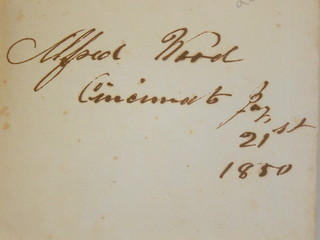 Alfred Wood
Cincinnati Jan
21st
1850